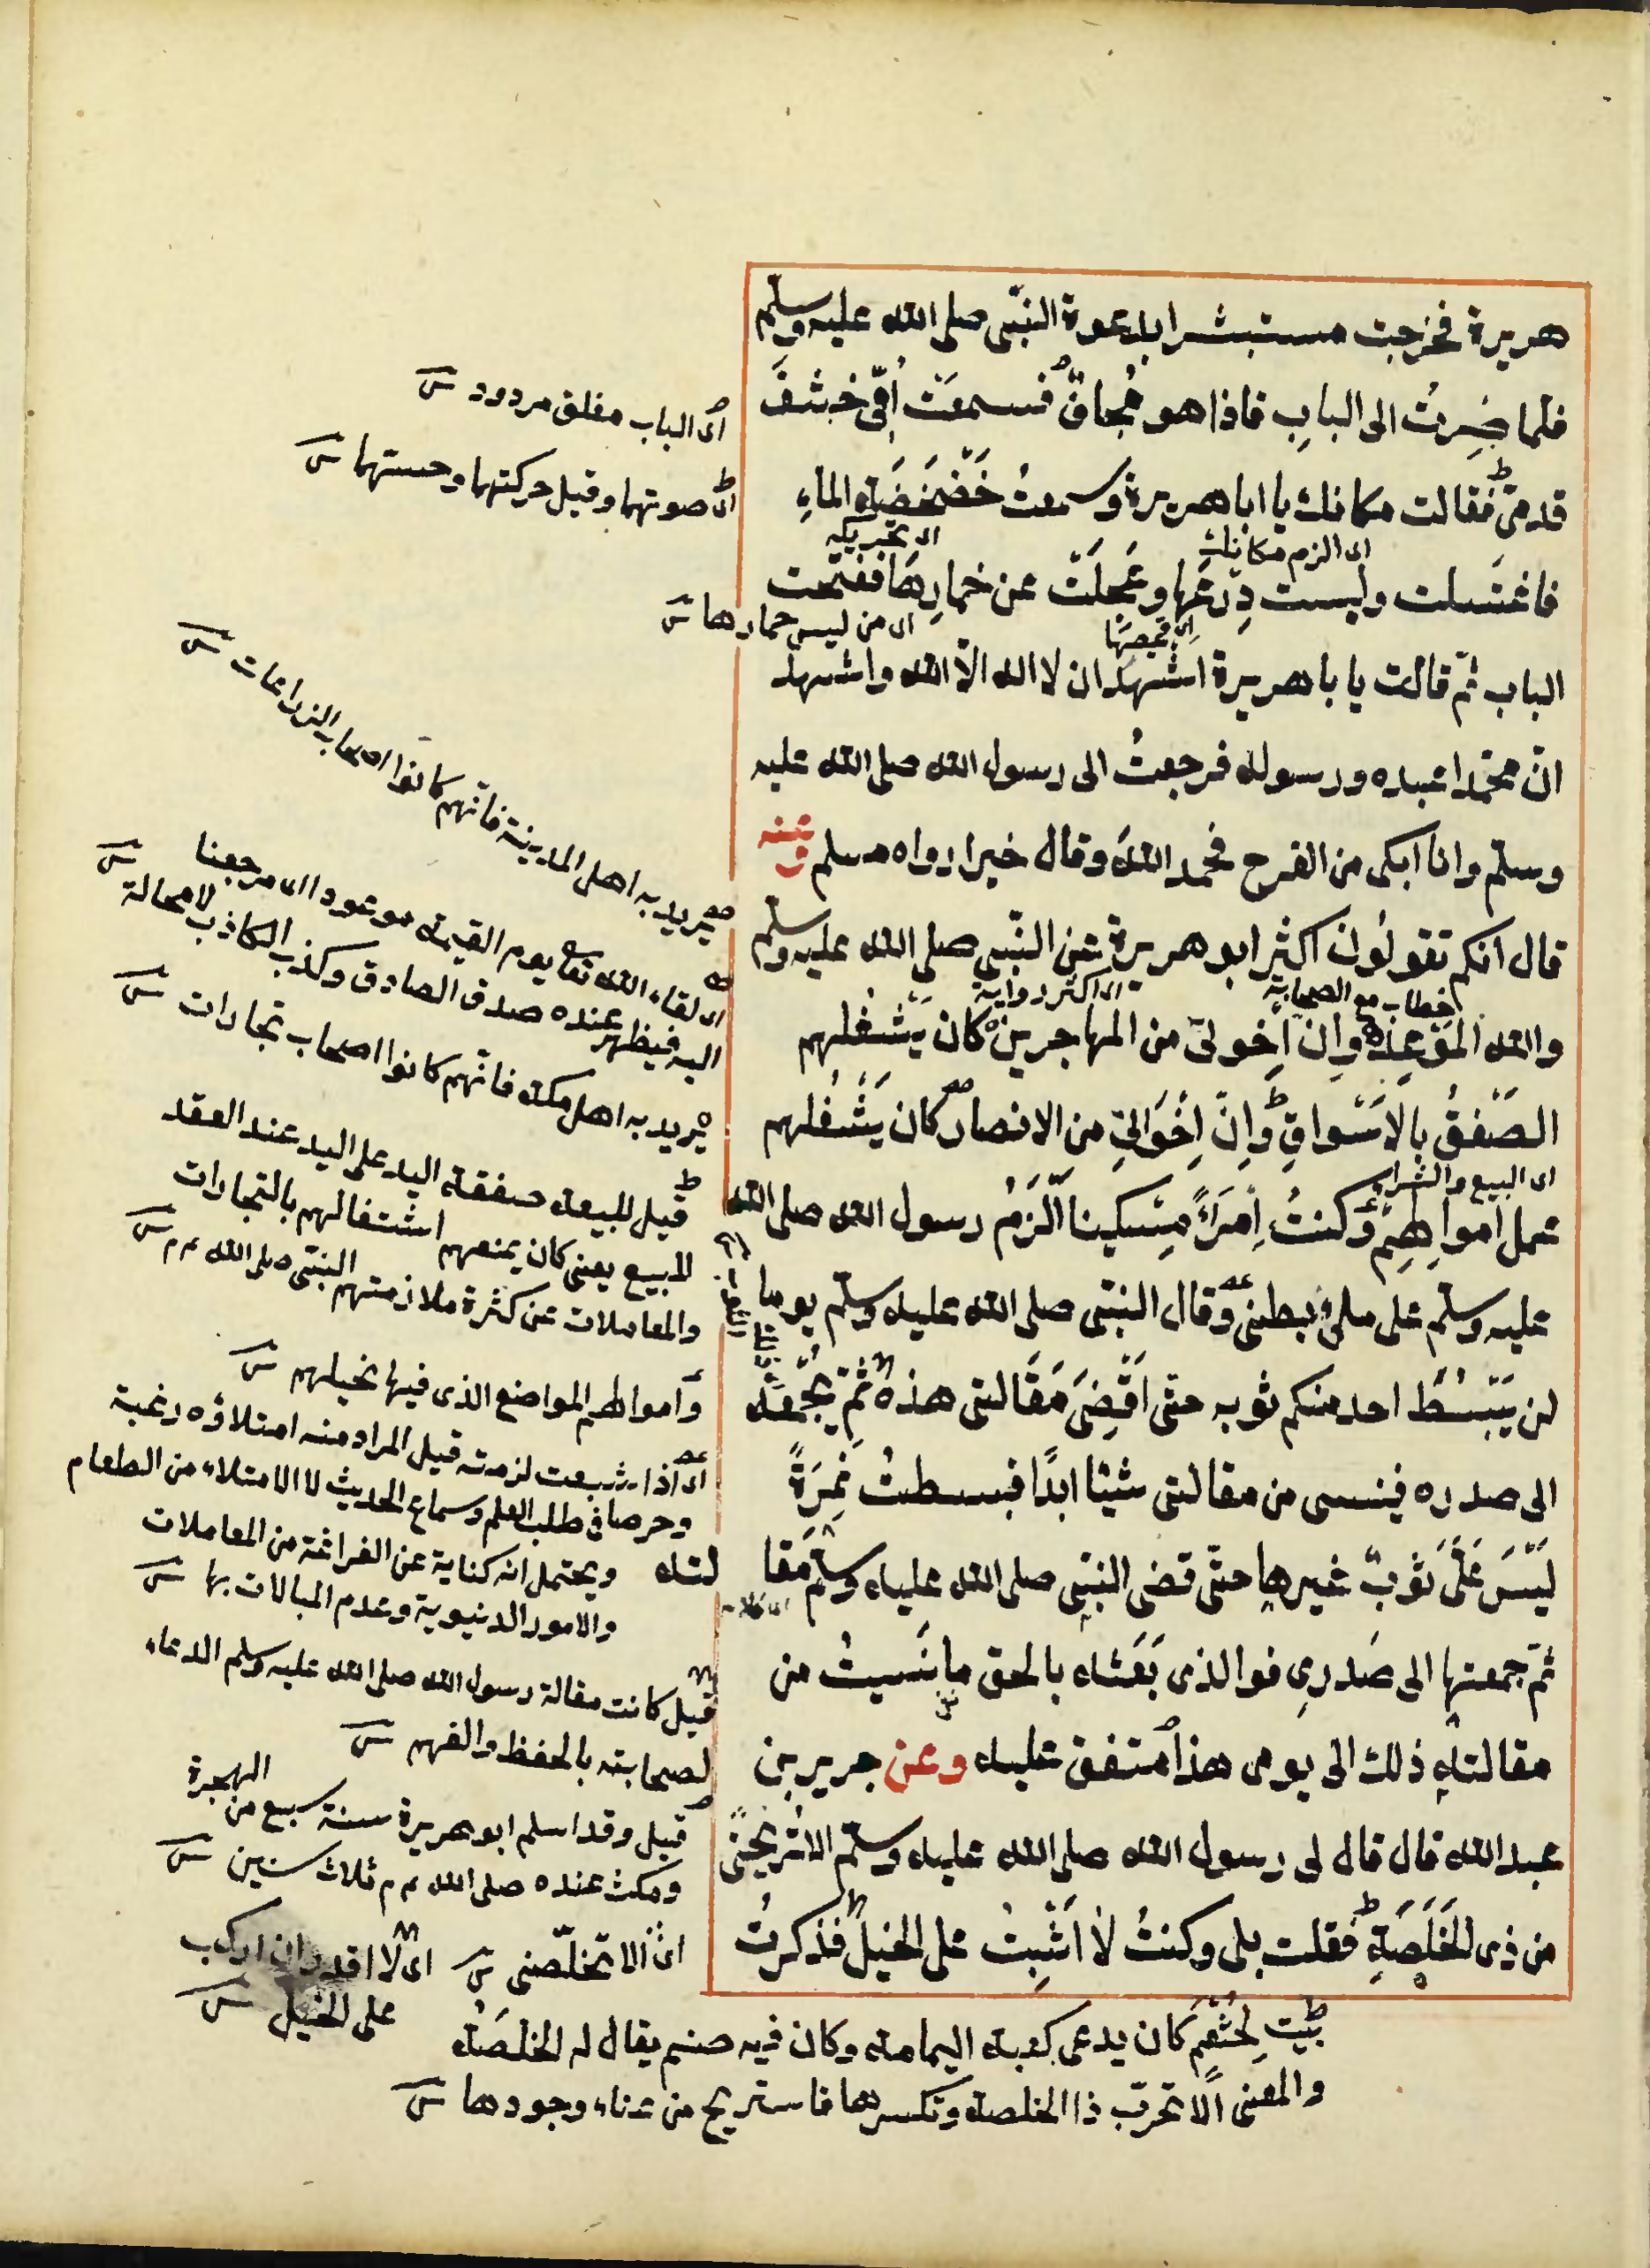 هريرة فخرجت مستبشرا بدعوة النبّى صلى الله عليه وسلّم
فلما صِرتُ الى البابِ فاذا هو مُجافٌ فسمعَتْ اُمّى خَشْفَ
قدمىّ فقالت مكانك يا ابا هريرة وسمعتُ خَضْخَضَةِ الماءِ
اى الزم مكانك
اى تحريكه
فاغتسلت ولبست دِرْعَها وعَجِلَتْ عن خمارِها ففتحت
اى قميصها
اى من لبس خمارها
الباب ثمّ قالت يا با هريرة اشهد ان لا اله الّا الله واشهد
انّ محمّدا عبده ورسوله فرجعتُ الى رسول الله صلى الله عليه
وسلّم وانا ابكى من الفرح فحمد اللهَ وقال خيرا رواه مسلم وعنه
قال انكم تقولُون اكثر ابو هريرة عن النّبى صلى الله عليه وسلّم
خطاب مع الصحابة
اى اكثر رواية
والله المَوْعِدُ وان اِخوتى من المهاجرين كان يَشْغلهم
الصَّفْقُ بالاَسْواقِ وَاِنّ اِخْوَاتِى من الانصار كان يَشْغُلهم
اى البيع والشراء
عمل اموالِهِم وكنتُ اِمْرَءً مِسْكينا اَلْزَمُ رسول الله صلى الله
عليه وسلّم على ملئ بطنى وقال النبّى صلى الله عليه وسلّم يوما
لن يَبْسُطَ احد منكم ثوبه حتّى اَقْضِىَ مَقَالتى هذه ثمّ يَجْمَعَهُ
الى صدره فينسى من مقالتى شيئا ابدًا فبسطتُ نَمِرَةً
لَيْسَ عَلَىَّ ثَوْبٌ غيرها حتّى قضى النبّى صلى الله عليه وسلّم مَقا
لته
ثمّ جمعتها الى صَدرِى فوالذى بَعَثَه بالحق ما نَسيتُ من
مقالتهِ ذلك الى يومى هذا متفق عليه وعن جرير بن
عبد الله قال قال لى رسول الله صلى الله عليه وسلّم الا تُريحُنى
من ذى الخَلَصَةِ فقلت بلى وكنتُ لا اَثْبِتُ على الخيل فذكرتُ
اى الباب مغلق مردود
اى صوتهما وقيل حركتهما وحسّهما
يريد به اهل المدينة فانّهم كانوا اصحاب الزراعات
اى لقاء الله تعا يوم القيمة موعود اى مرجعنا
اليه فيظهر عنده صدق الصادق وكذب الكاذب لا محالة
يريد به اهل مكة فانّهم كانوا اصحاب تجارات
قيل للبيعة صفقة اليد على اليد عند العقد
للبيع يعنى كان يمنعهم اشتغالهم بالتجارات
والمعاملات عن كثرة ملازمتهم النبّى صلى الله عم
واموالهم المواضع الذى فيها نخيلهم
اى اذا شبعت لزمته قيل المراد منه امتلاؤه رغبة
وحرصا فى طلب العلم وسماع الحديث لا الامتلاء من الطعام
ويحتمل انه كناية عن الفراغة من المعاملات
والامور الدنيوية وعدم المبالات بها
قيل كانت مقالة رسول الله صلى الله عليه وسلم الدعاء
لصحابته بالحفظ والفهم
قيل وقد اسلم ابو هريرة سنة سبع من الهجرة
ومكث عنده صلى الله عم ثلاث سنين
اى الا تخلّصنى
اى لا اقدر ان اركب
على الخيل
بيت لخثعم كان يدعى كعبة اليمامة وكان فيه صنم يقال له الخلصة
والمعنى الا تخرّب ذا الخلصة وتكسرها فاستريح من عناء وجودها